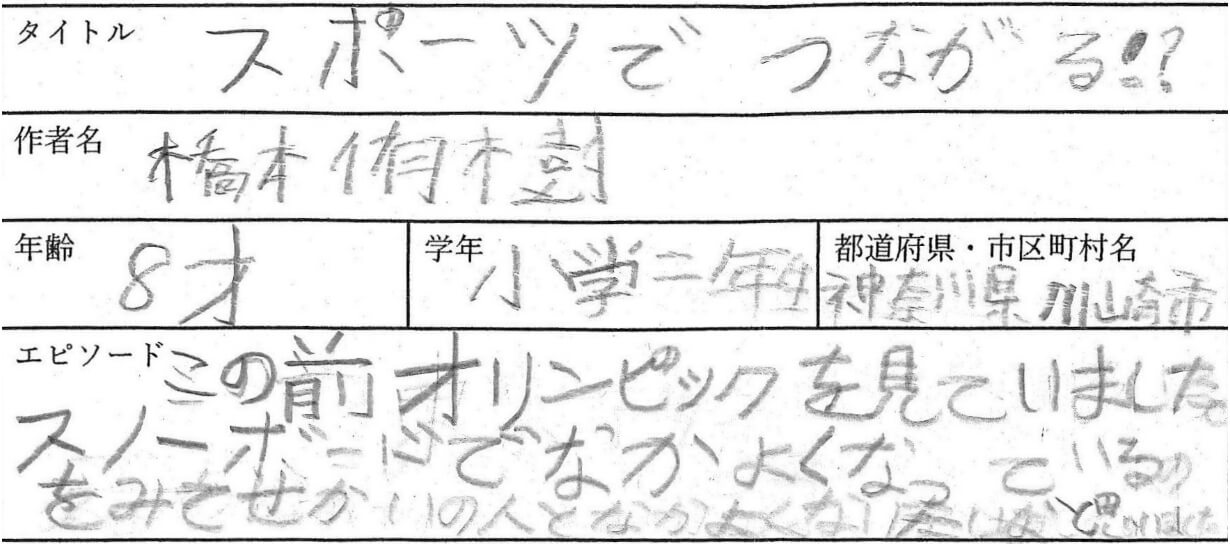 タイトル スポーツで つながる!?
作者名 橋本侑樹
年齢 8才
学年 小学二年生
都道府県・市区町村名 神奈川県 川崎市
エピソード この前オリンピックを見ていました。
スノーボードでなかよくなっているの
をみてせかいの人となかよくなり と思いました